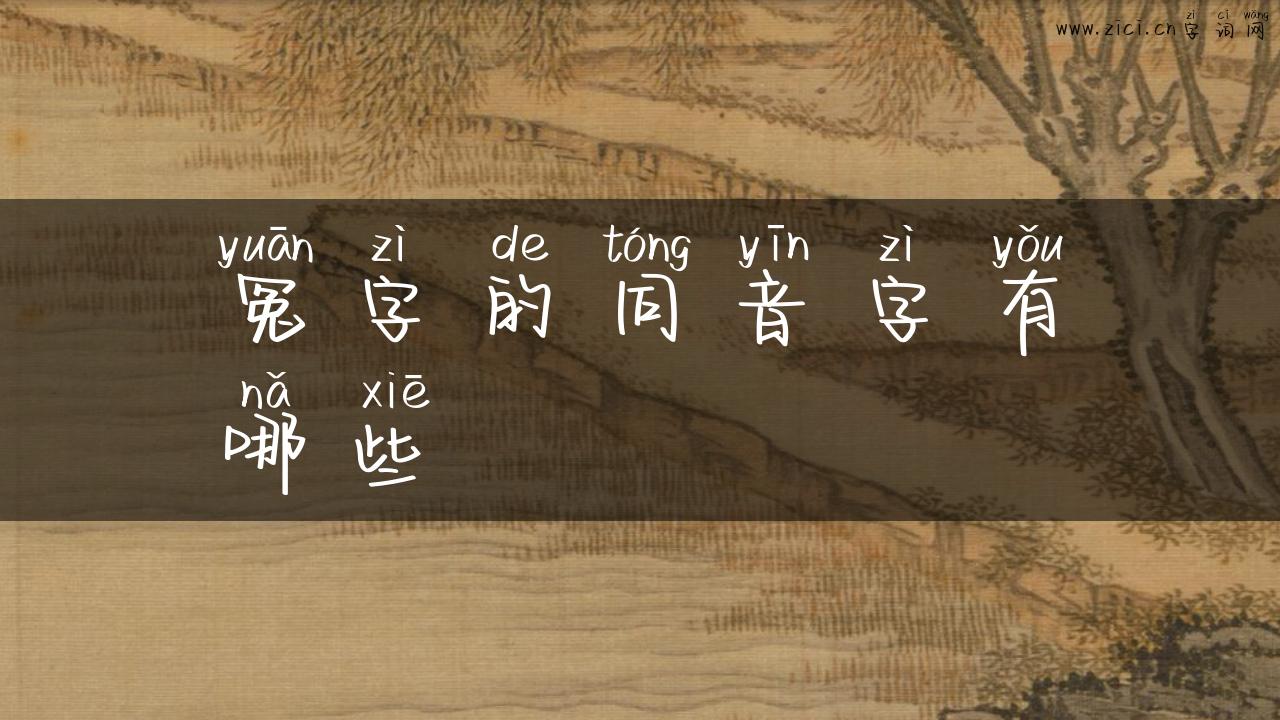 zì cí wǎng
www.zici.cn字词网
yuān zì de tóng yīn zì yǒu
冤字的同音字有
nǎ xiē
哪些